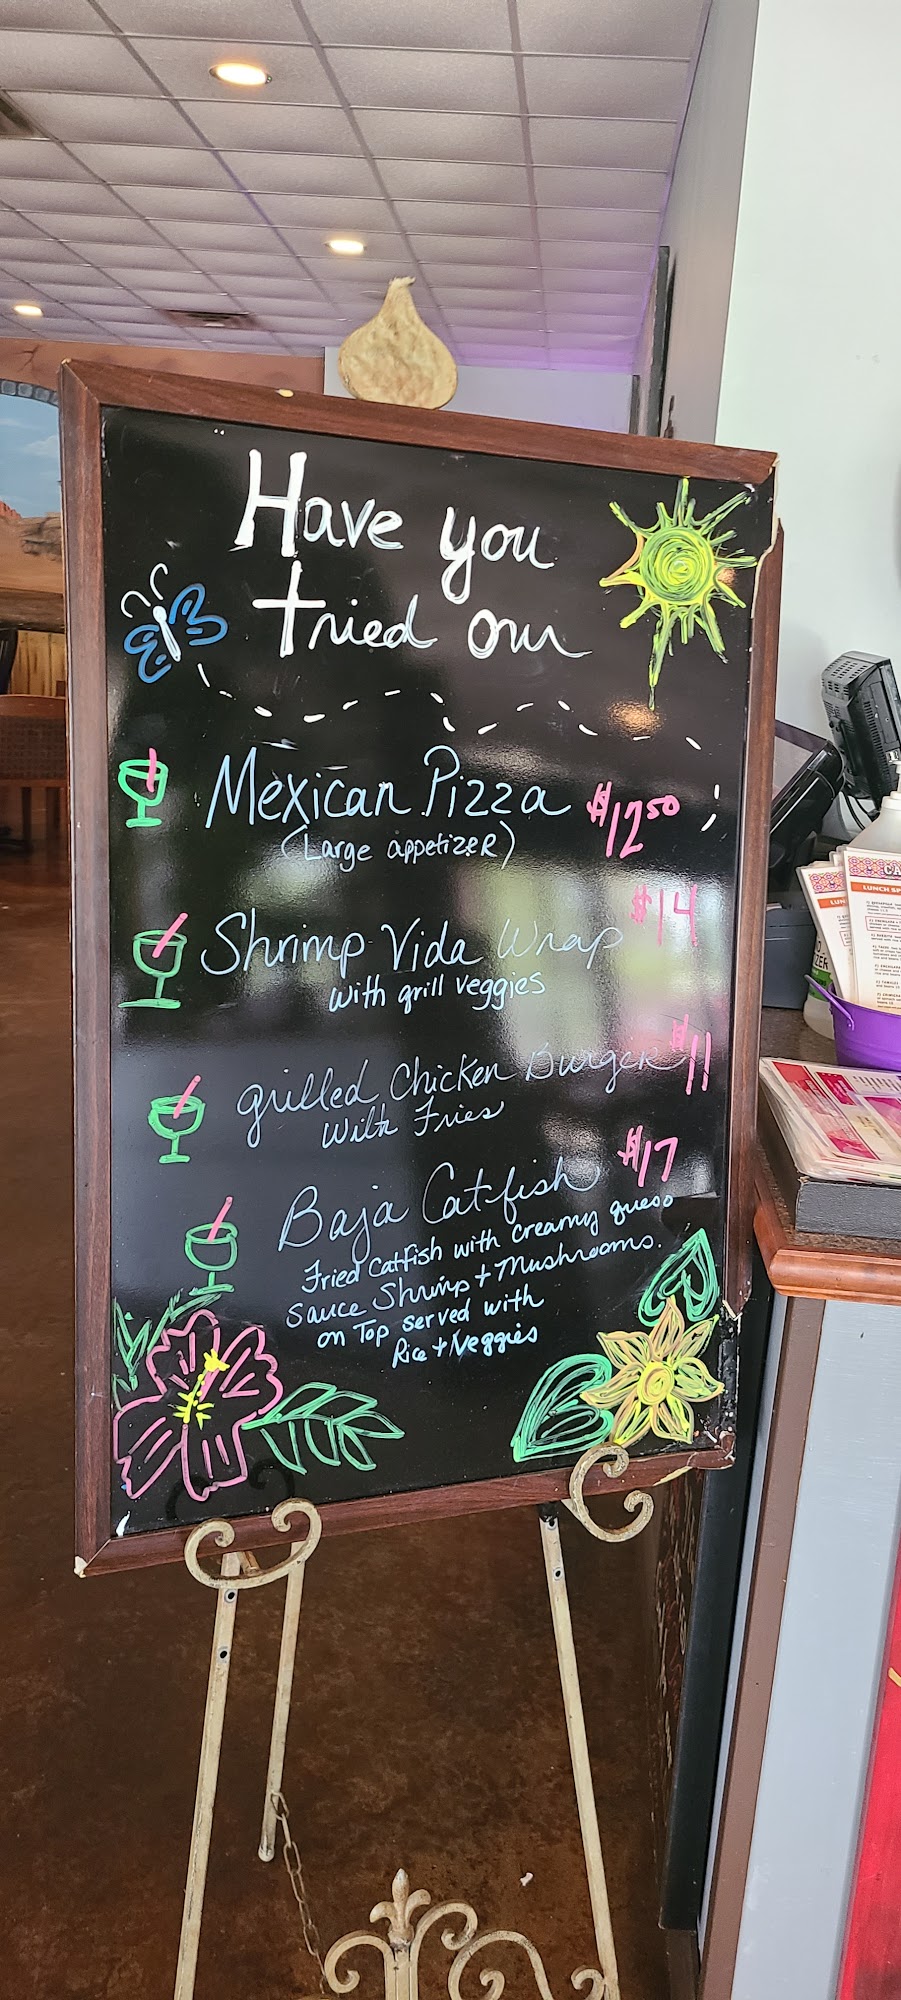 Have you
tried our
Mexican Pizza $12.50
(Large appetizer)
Shrimp Vida Wrap $14
with grill veggies
grilled Chicken Burger $11
With Fries
Baja Catfish $17
Fried Catfish with creamy queso
sauce Shrimp + Mushrooms.
on Top served with
Rice + Veggies
LUNCH SP